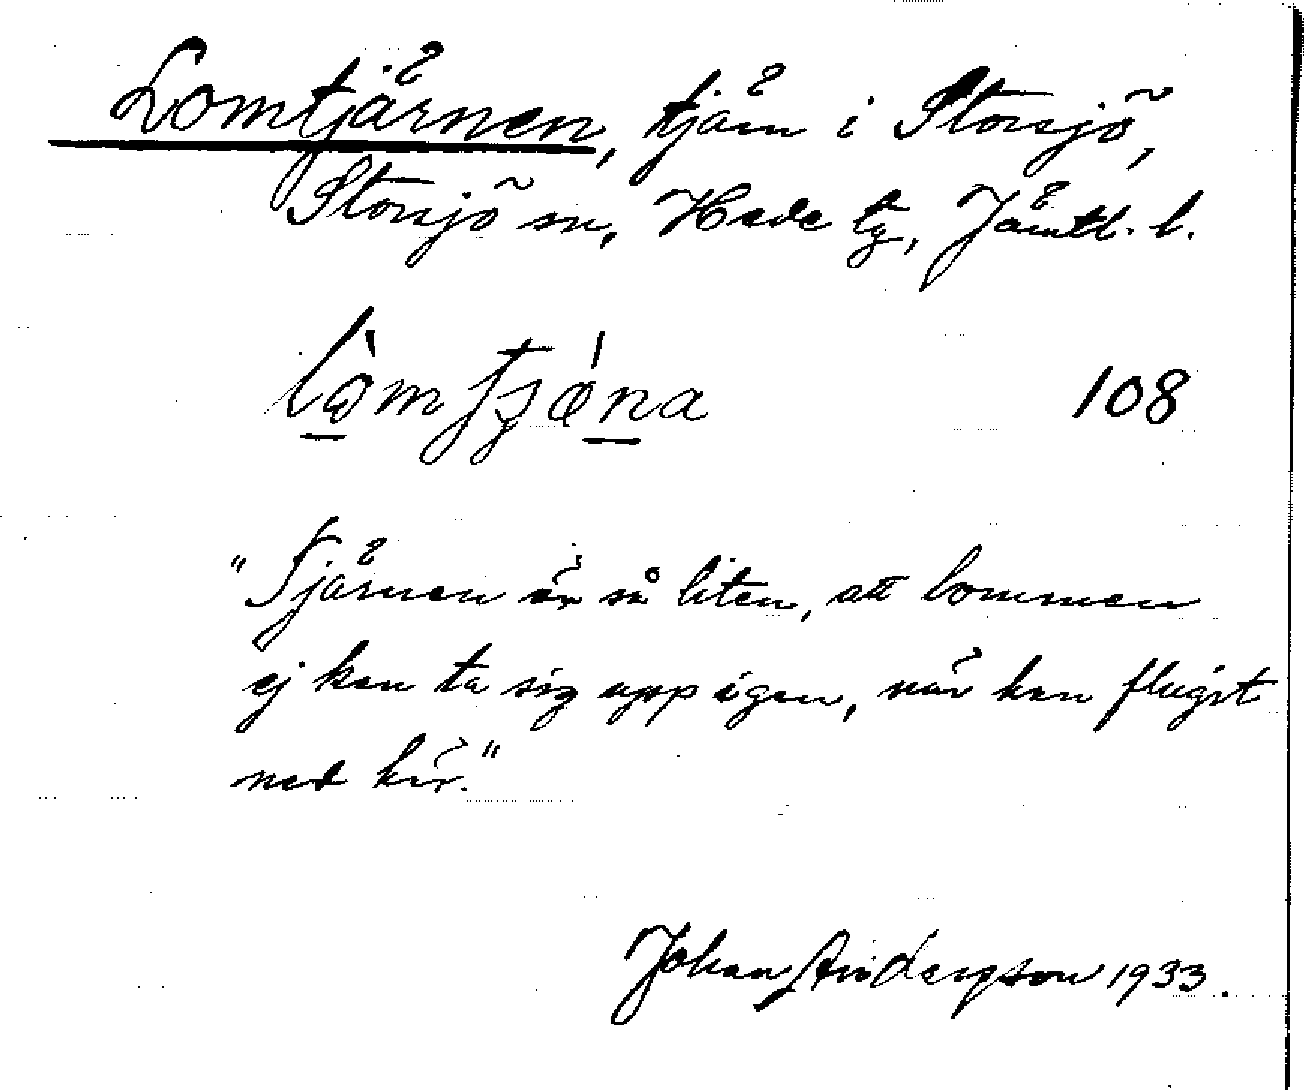 Lomtjärnen, tjärn i Storsjö,
Storsjö sn, Hede tg, Jämtl. l.
lòmtjǽna 108
"Tjärnen är så liten, att lommen
ej kan ta sig upp igen, när han flugit
ned här."
Johan Anderson 1933.